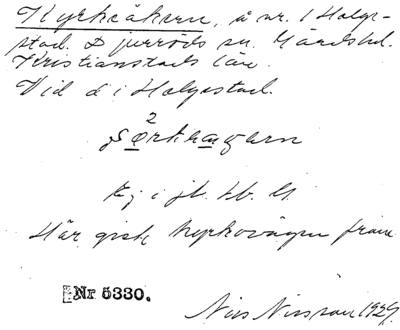 Kyrkåkern, å nr. 1 Holge-
stad. D jurröds sn. Gärds hd.
Kristianstads län.
Vid d i Holgestad.
2
Ej i jb. Lb. G.
Här gick kyrkovägen fram
Nr 5330.
Nils Nilsson 1927.